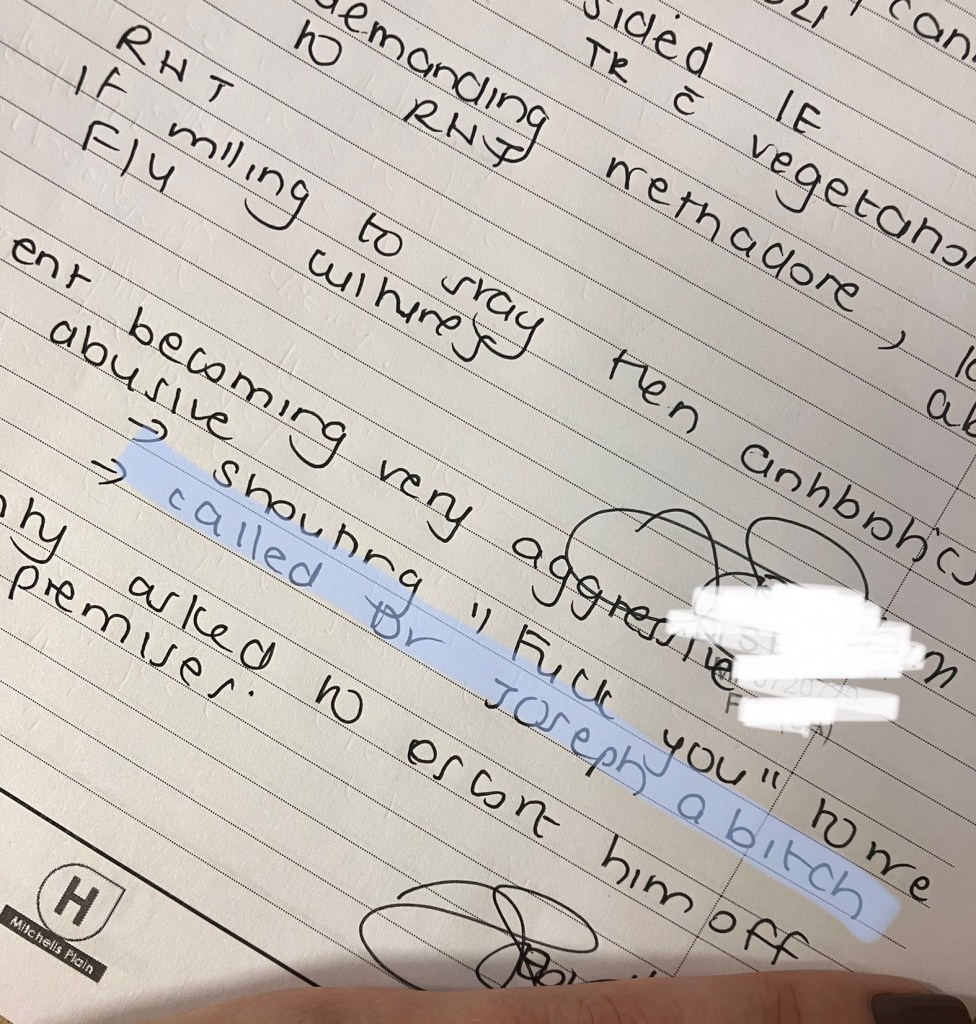 sided IE
TR c̄ vegetation
demanding methadone,
to RHT
RHT
IF willing to stay then antibiotics
F/u cultures
ent becoming very aggressive
abusive
→ shouting "Fuck you" to me
→ called Dr Joseph a bitch
ity asked to escort him off
premises.
H
Mitchells Plain